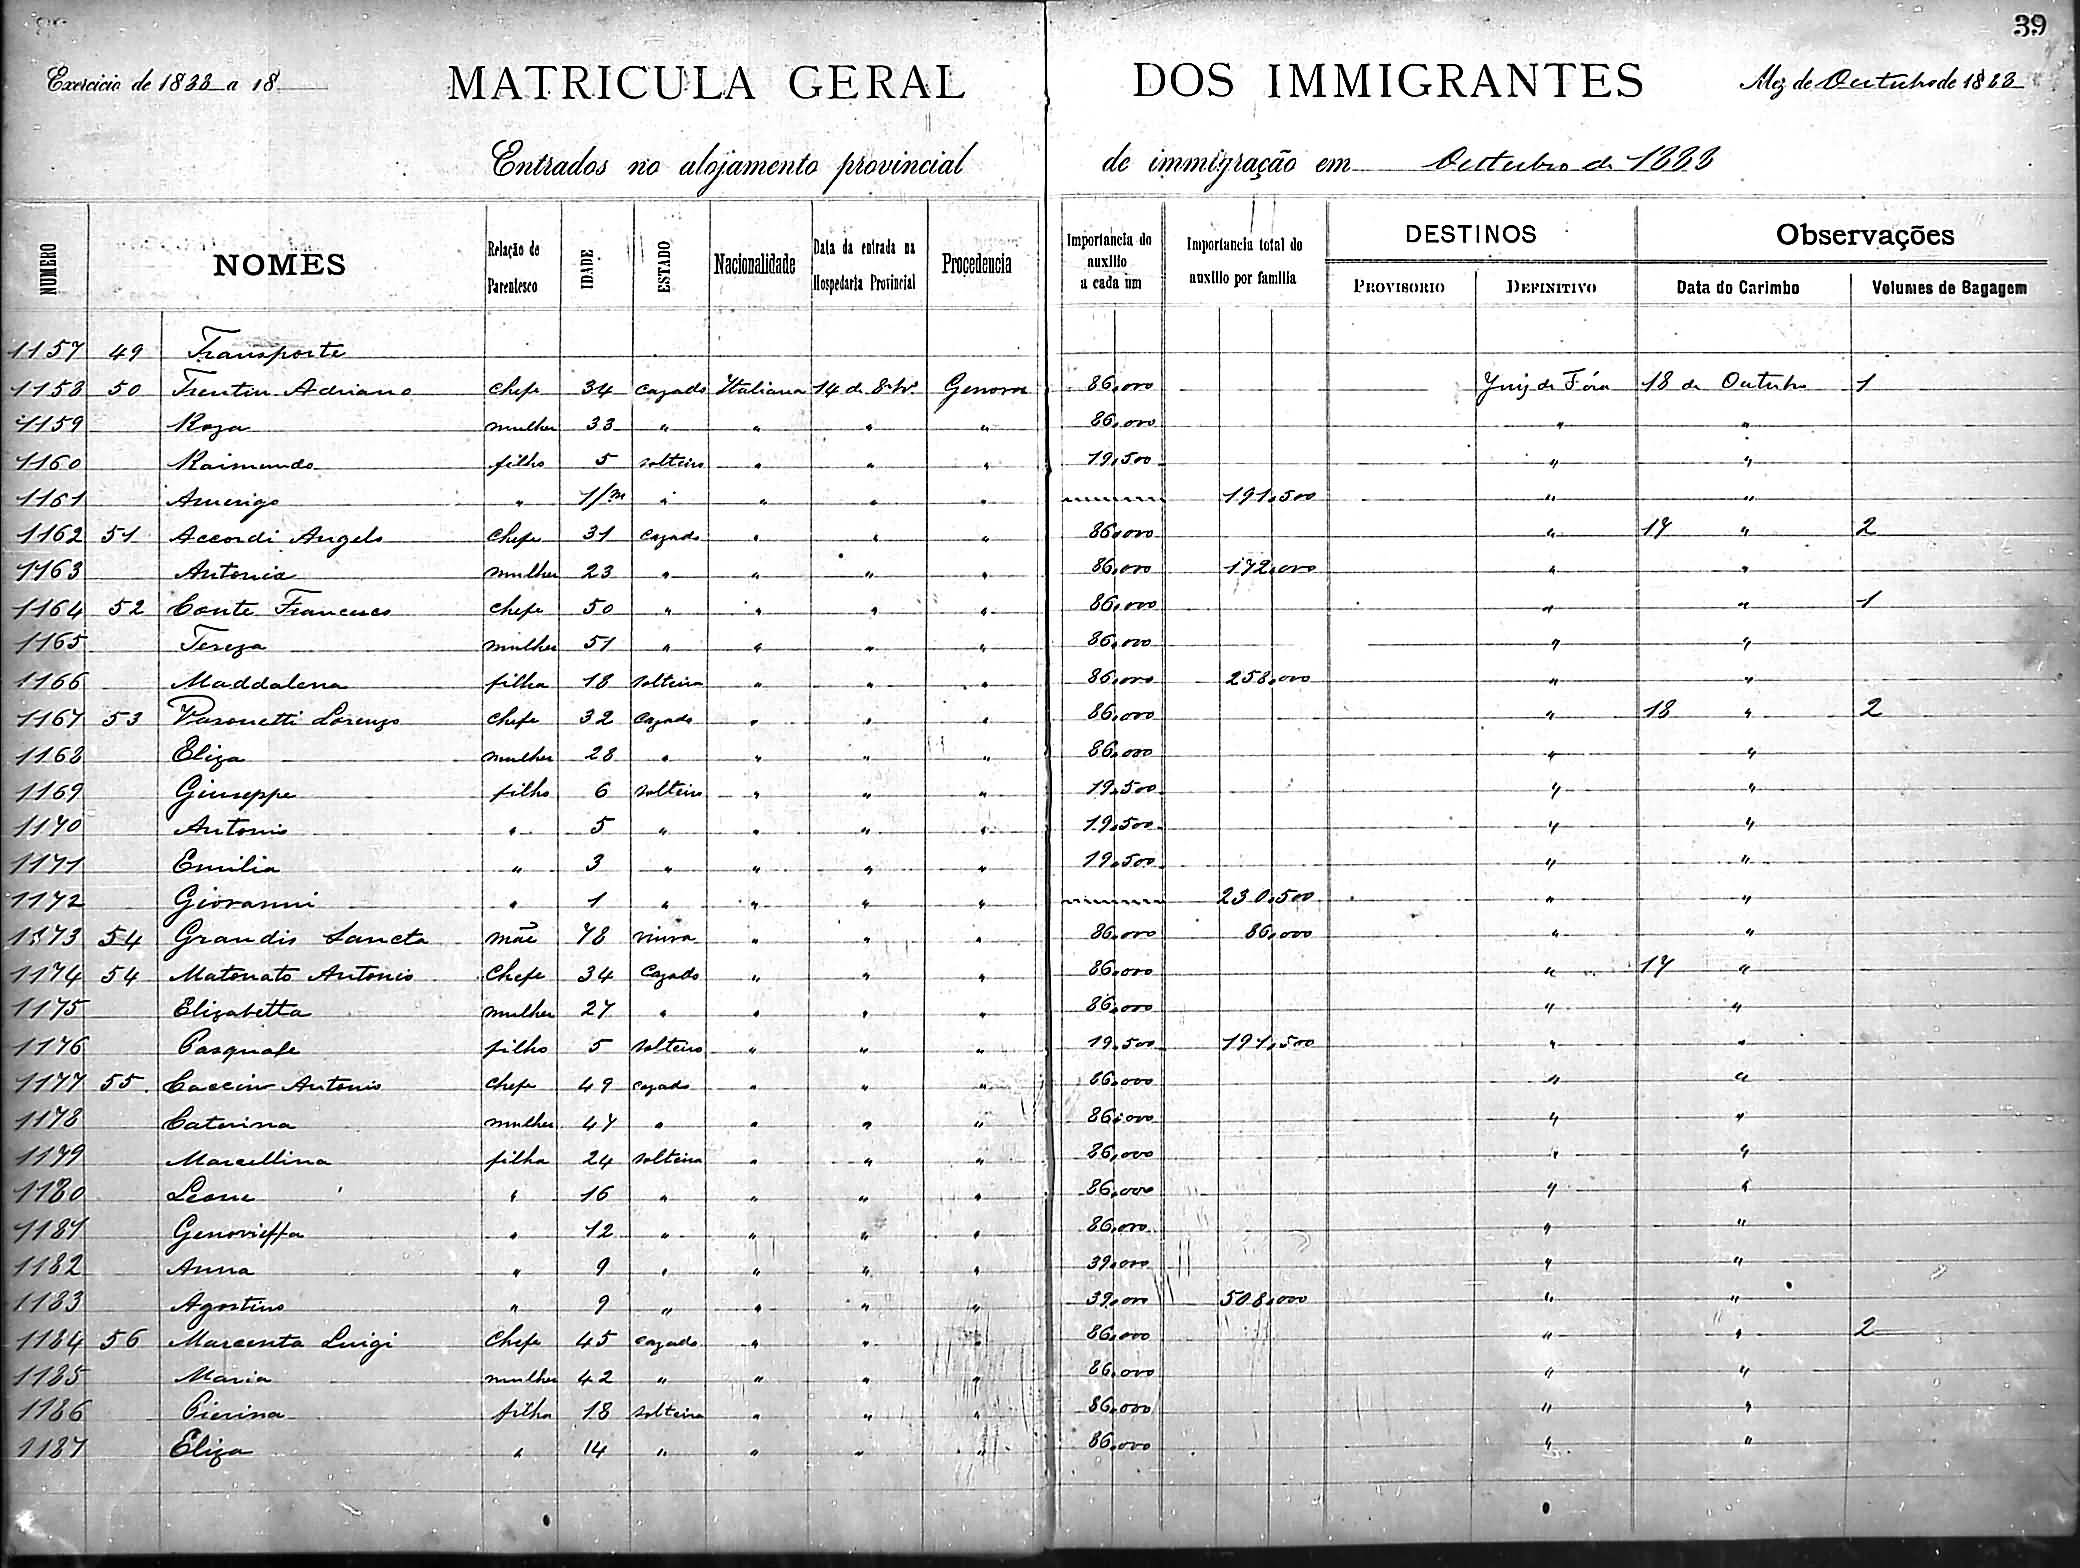 39
Exercicio de 1888 a 18
MATRICULA GERAL DOS IMMIGRANTES
Mez de Outubro de 1888
Entrados no alojamento provincial de immigração em Outubro de 1888
NUMERO NOMES Relação de Parentesco IDADE ESTADO Nacionalidade Data da entrada na Hospedaria Provincial Procedencia Importancia do auxilio a cada um Importancia total do auxilio por familia DESTINOS PROVISORIO DEFINITIVO Observações Data do Carimbo Volumes de Bagagem
1157 49 Transporte
1158 50 Trentin Adriano chefe 34 cazado Italiana 14 de 8bro Genova 86,000 Juiz de Fóra 18 de Outubro 1
1159 Roza mulher 33 " " " " 86,000 " "
1160 Raimundo filho 5 solteiro " " " 19,500 " "
1161 Amerigo " 1/m " " " " 191,500 " "
1162 51 Accordi Angelo chefe 31 cazado " " " 86,000 " 17 " 2
1163 Antonia mulher 23 " " " " 86,000 172,000 " "
1164 52 Conte Francesco chefe 50 " " " " 86,000 " " 1
1165 Tereza mulher 51 " " " " 86,000 " "
1166 Maddalena filha 18 solteira " " " 86,000 258,000 " "
1167 53 Lorenzo chefe 32 cazado " " " 86,000 " 18 " 2
1168 Eliza mulher 28 " " " " 86,000 " "
1169 Giuseppe filho 6 solteiro " " " 19,500 " "
1170 Antonio " 5 " " " " 19,500 " "
1171 Emilia " 3 " " " " 19,500 " "
1172 Giovanni " 1 " " " " 230,500 " "
1173 54 Grandis Sancta mãe 78 viuva " " " 86,000 86,000 " "
1174 54 Matonato Antonio Chefe 34 Cazado " " " 86,000 " 17 "
1175 Elizabetta mulher 27 " " " " 86,000 " "
1176 Pasquale filho 5 solteiro " " " 19,500 191,500 " "
1177 55 Caccin Antonio chefe 49 cazado " " " 86,000 " "
1178 Caterina mulher 47 " " " " 86,000 " "
1179 Marcellina filha 24 solteira " " " 86,000 " "
1180 Leone " 16 " " " " 86,000 " "
1181 Genovieffa " 12 " " " " 86,000 " "
1182 Anna " 9 " " " " 39,000 " "
1183 Agostino " 9 " " " " 39,000 508,000 " "
1184 56 Marcenta Luigi Chefe 45 cazado " " " 86,000 " " 2
1185 Maria mulher 42 " " " " 86,000 " "
1186 Pierina filha 18 solteira " " " 86,000 " "
1187 Eliza " 14 " " " " 86,000 " "